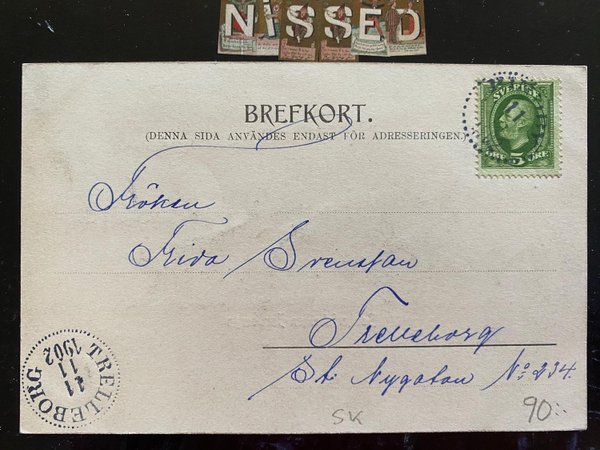 NISSED
BREFKORT.
(DENNA SIDA ANVÄNDES ENDAST FÖR ADRESSERINGEN.)
SVERIGE
5
ÖRE
11
Fröken
Frida Svensson
Trelleborg
St. Nygatan No 234.
TRELLEBORG
11
11
1902
SK
90:-